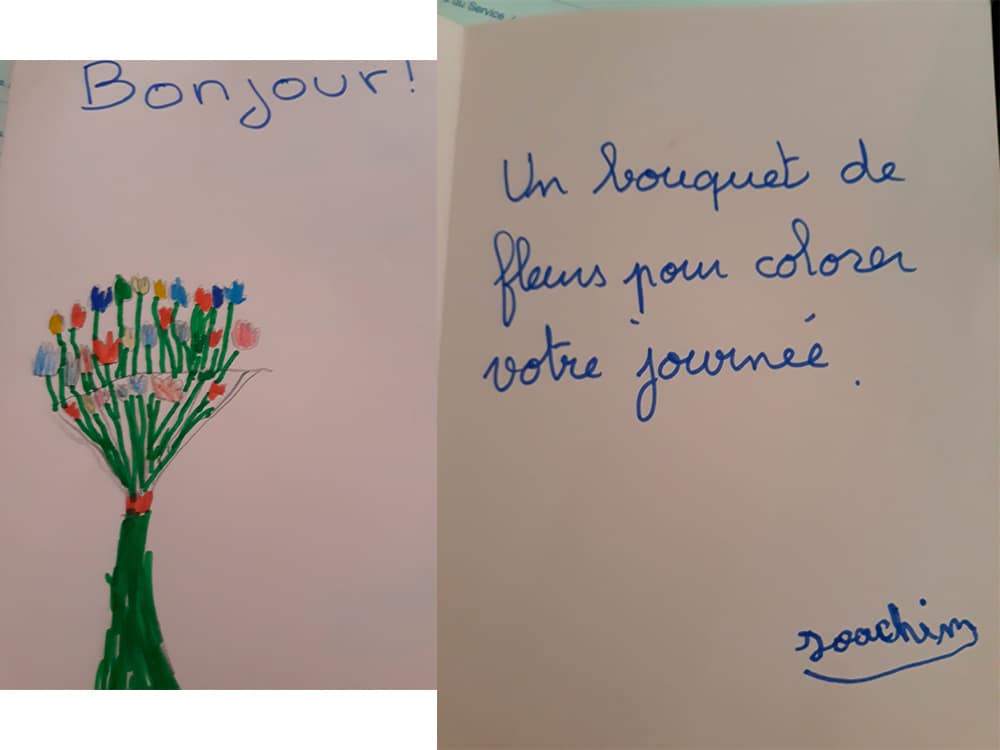 Bonjour!
du Service
Un bouquet de
fleurs pour colorer
votre journée.
Joachim